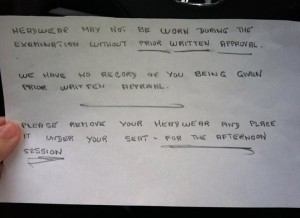 HEADWEAR MAY NOT BE WORN DURING THE
EXAMINATION WITHOUT PRIOR WRITTEN APPROVAL.
WE HAVE NO RECORD OF YOU BEING GIVEN
PRIOR WRITTEN APPROVAL.
PLEASE REMOVE YOUR HEADWEAR AND PLACE
IT UNDER YOUR SEAT - FOR THE AFTERNOON
SESSION